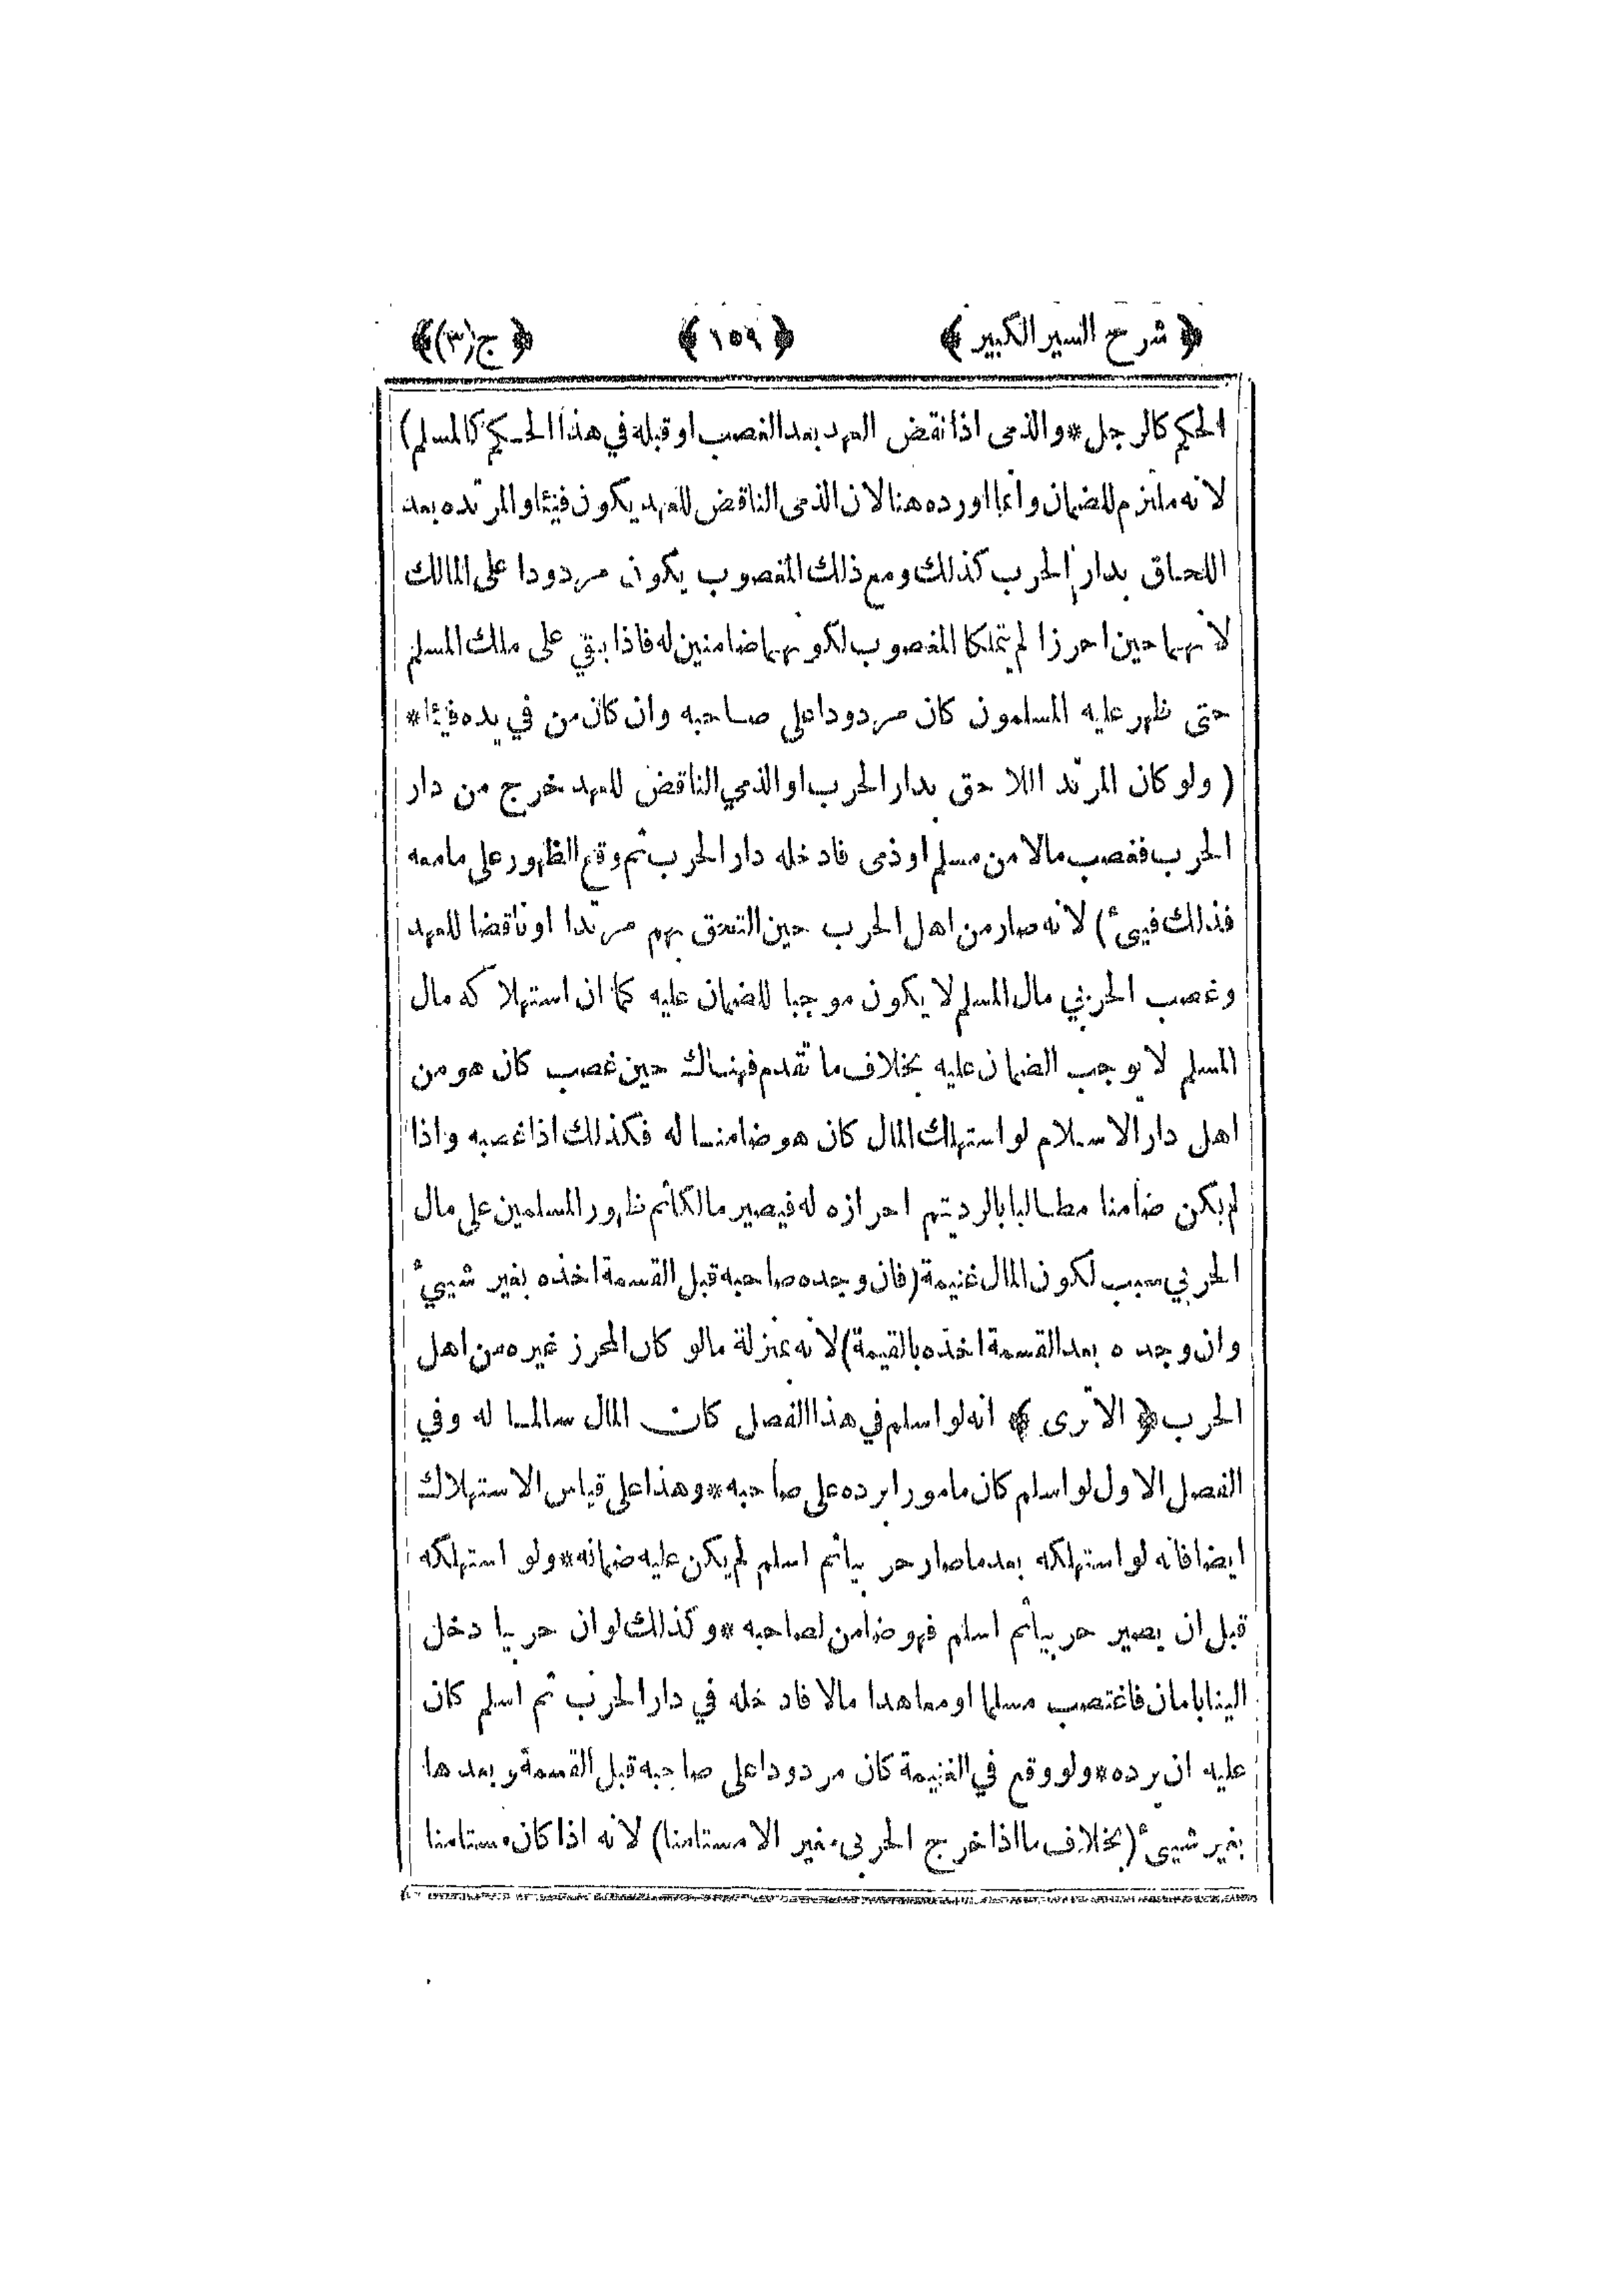 ﴿ شرح السير الكبير ﴾ ﴿ ١٥٩ ﴾ ﴿ ج (٣) ﴾
الحكم كالرجل * والذمى اذا نقض العهد بعد الغصب او قبله في هذا الحكم كالمسلم )
لانه ملتزم للضمان وانما اورده هنا لان الذمى الناقض للعهد يكون فيئا والمرتده بعد
اللحاق بدار الحرب كذلك ومع ذلك المغصوب يكون مردودا على المالك
لانهما حين احرزا لم يتملكا المغصوب لكونهما ضامنين له فاذا بقي على ملك المسلم
حتى ظهر عليه المسلمون كان مردودا على صاحبه وان كان من في يده فيئا *
( ولو كان المرتد اللاحق بدار الحرب او الذمي الناقض للعهد خرج من دار
الحرب فغصب مالا من مسلم او ذمى فادخله دار الحرب ثم وقع الظهور على ما معه
فذلك فييء ) لانه صار من اهل الحرب حين التحق بهم مرتدا او ناقضا للعهد
وغصب الحربي مال المسلم لا يكون موجبا للضمان عليه كما ان استهلاكه مال
المسلم لا يوجب الضمان عليه بخلاف ما تقدم فهناك حين غصب كان هو من
اهل دار الاسلام لو استهلك المال كان هو ضامنا له فكذلك اذا غصبه واذا
لم يكن ضامنا مطالبا بالرد يتم احرازه له فيصير مالكا ثم ظهور المسلمين على مال
الحربي سبب لكون المال غنيمة ( فان وجده صاحبه قبل القسمة اخذه بغير شييء
وان وجده بعد القسمة اخذه بالقيمة ) لانه بمنزلة ما لو كان المحرز غيره من اهل
الحرب ﴿ الاترى ﴾ انه لو اسلم في هذا الفصل كان المال سالما له وفي
الفصل الاول لو اسلم كان مامورا برده على صاحبه * وهذا على قياس الاستهلاك
ايضا فانه لو استهلكه بعد ما صار حربيا ثم اسلم لم يكن عليه ضمانه * ولو استهلكه
قبل ان يصير حربيا ثم اسلم فهو ضامن لصاحبه * وكذلك لو ان حربيا دخل
الينا بامان فاغتصب مسلما او معاهدا مالا فادخله في دار الحرب ثم اسلم كان
عليه ان يرده * ولو وقع في الغنيمة كان مردودا على صاحبه قبل القسمة وبعدها
بغير شييء ( بخلاف ما اذا خرج الحربى مغير الا مستامنا ) لانه اذا كان مستامنا